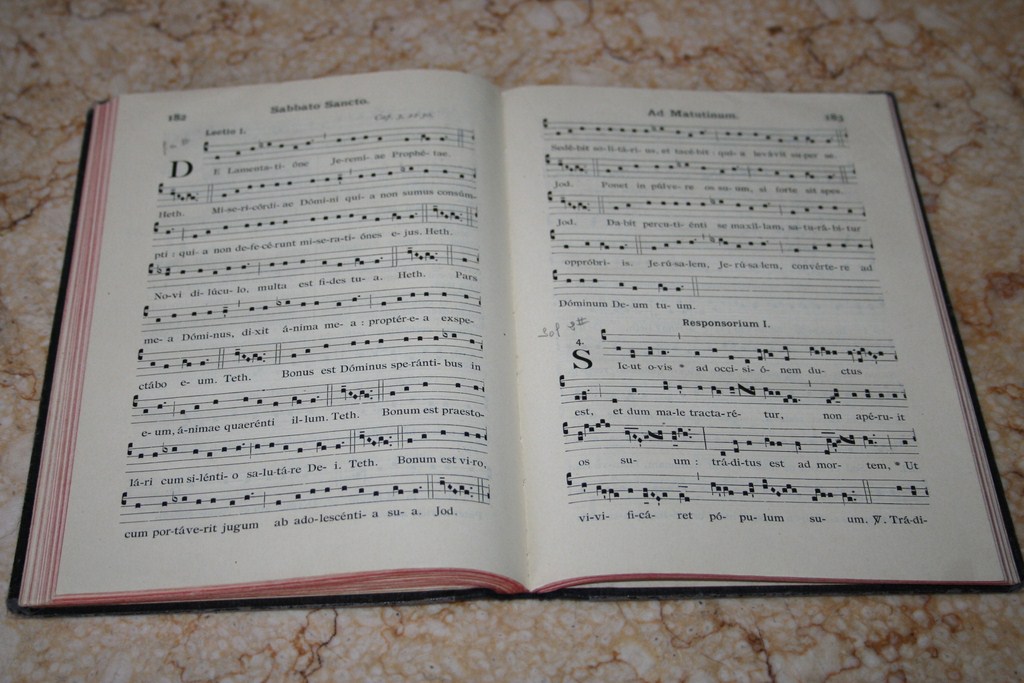 182
Sabbato Sancto.
Lectio I.
Cap. 3, 22-30
DE Lamenta-ti- óne Jeremí- ae Prophé- tae.
Heth. Mi-se-ri-córdi- ae Dómi-ni qui- a non sumus consúm-
pti : qui- a non de-fe-cé-runt mi-se-ra-ti- ónes e- jus. Heth.
No-vi di-lúcu- lo, multa est fi-des tu- a. Heth. Pars
me- a Dómi-nus, di-xit á-nima me- a : proptér-e- a exspe-
ctábo e- um. Teth. Bonus est Dóminus speránti- bus in
e- um, á-nimae quaerénti il-lum. Teth. Bonum est praesto-
lá-ri cum si-lénti- o sa-lu-tá-re De- i. Teth. Bonum est vi-ro,
cum por-táve-rit jugum ab ado-lescénti- a su- a. Jod.
Ad Matutinum.
183
Sedé-bit so-li-tá-ri- us, et tacé-bit : qui- a levávit su-per se.
Jod. Ponet in púlve-re os su- um, si forte sit spes.
Jod. Da-bit percu-ti- énti se maxíl-lam, sa-tu-rá-bi-tur
oppróbri- is. Je-rú-sa-lem, Je-rú-sa-lem, convérte-re ad
Dóminum De- um tu- um.
Responsorium I.
Sol 3#
4.
SIc-ut o-vis * ad occi-si- ó- nem du- ctus
est, et dum ma-le tracta-ré- tur, non apé-ru- it
os su- um : trá-di-tus est ad mor- tem, * Ut
vi-vi- fi-cá- ret pó- pu- lum su- um. ℣. Trá-di-